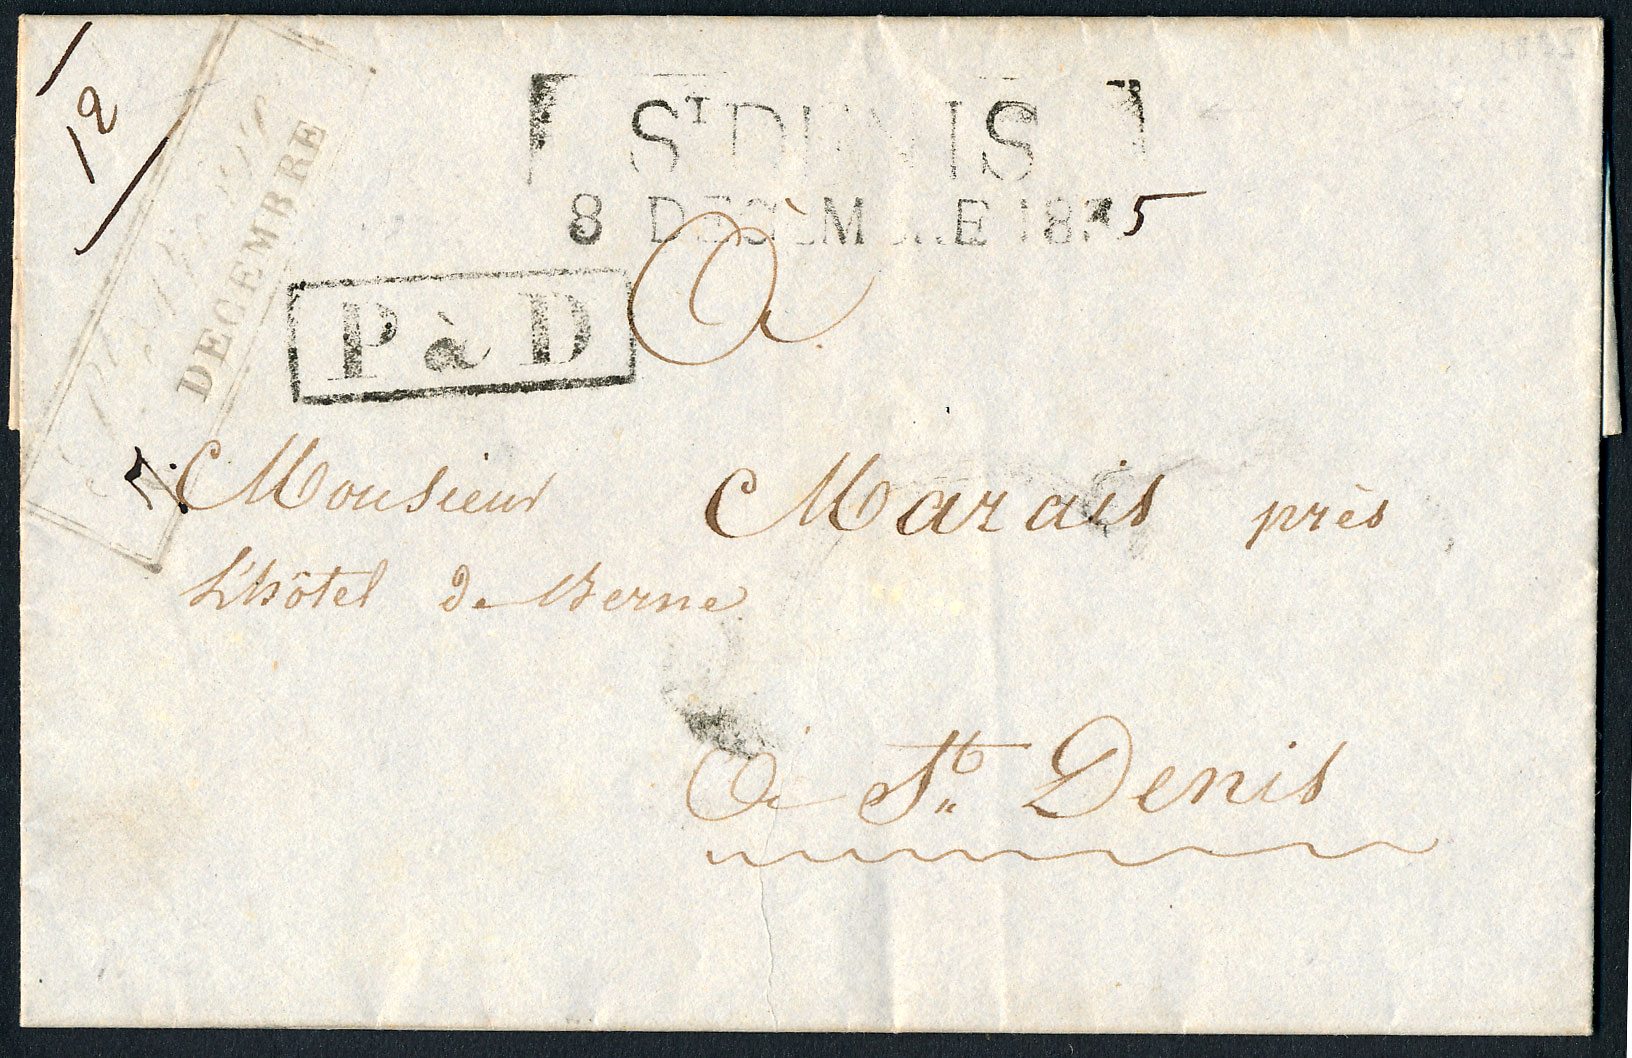 12
DECEMBRE
7.
ST DENIS
8 DECEMBRE 1835
P à D
A
Monsieur Marais près
L'hôtel de Berne
A St. Denis